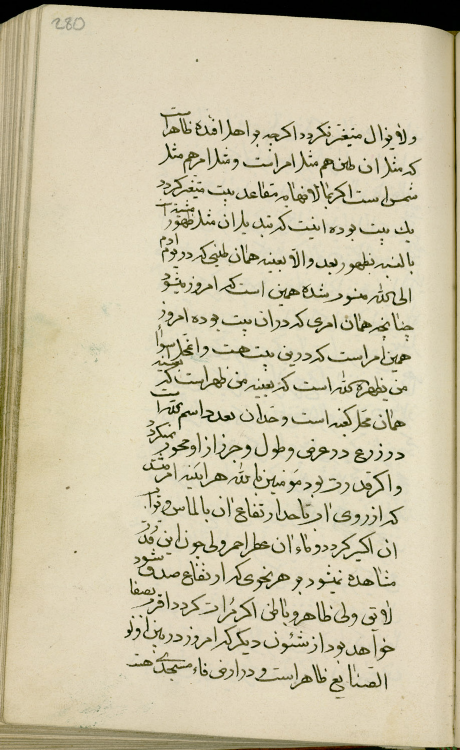 280
ولا یزال متغیر نگردد اگرچه بر اهل افئده ظاهر است
که مثل ان طین هم مثل امر است و مثل امر هم مثل
شمس است اگر بمالانهایه مقاعد بیت متغیر گردد
یک بیت بوده اینست که تبدیل ان مثل ظهور
بالنسبه بظهور بعد والا بعینه همان طینی که در یوم ادم
الی الله منسوب شده همین است که امروز میشود
چنانچه همان امری که دران بیت بوده امروز
همین امر است که درین بیت هست و انمحل سواء
من یظهره الله است که بعینه من ظهر است که
همان محل کعبه است وحد ان بعدد اسم الله است
در زرع در عرض و طول و جزاز او محجوب
واگر قدرت بود مؤمنین بالله هر اینه امر
که از روی ارض تا حد ارتفاع ان بالماس و تراب
ان اکسیر گردد و ماء ان عطر احمر ولی چون این قدرت
مشاهده نمیشود بهر نحوی که ارتفاع صدق شود
لایق ولی ظاهر و باطن اگر مرات گردد اقرب
خواهد بود از شئون دیگر که امروز در بین اولو
الصنایع ظاهر است و در ارض فاء مسجدی هست